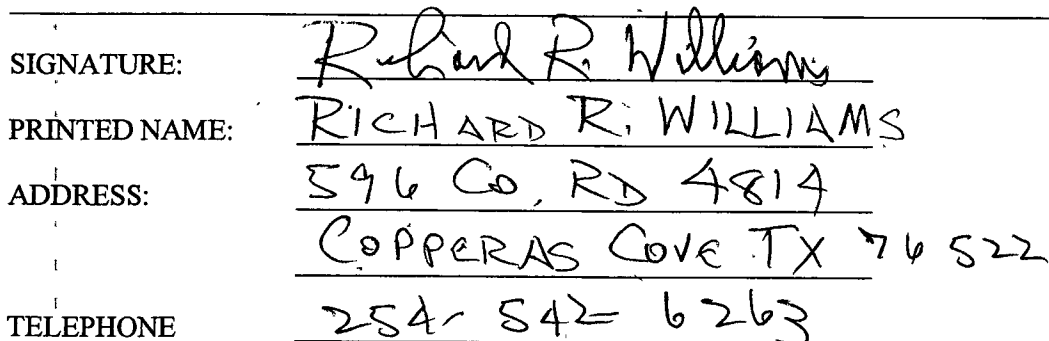 SIGNATURE: Richard R. Williams
PRINTED NAME: RICHARD R. WILLIAMS
ADDRESS: 596 Co, RD 4814
COPPERAS COVE TX 76522
TELEPHONE 254-542-6263